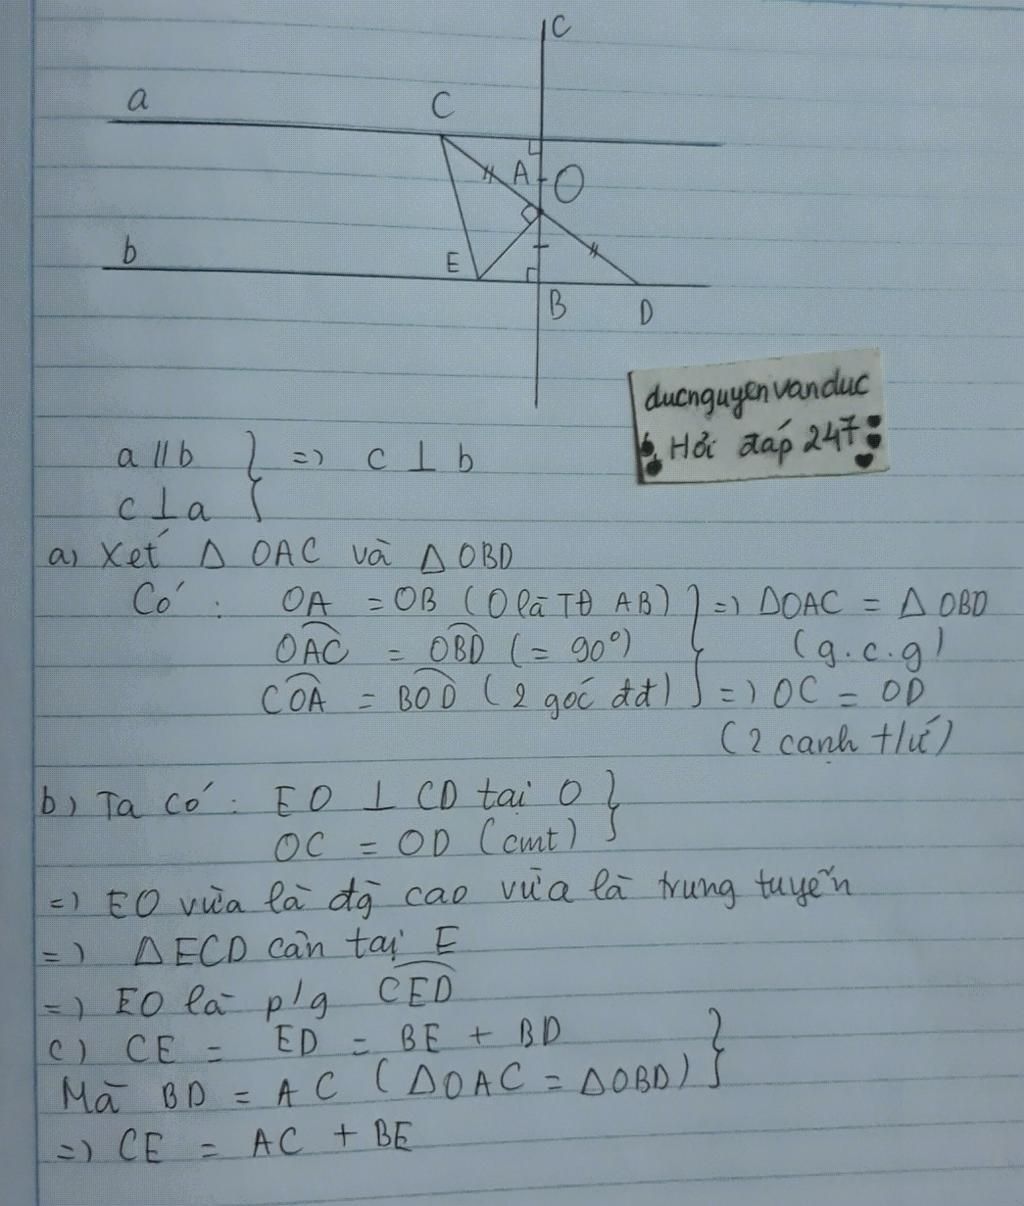 C
a
C
A
O
b
E
B
D
ducnguyenvanduc
Hỏi đáp 247
a // b } => c ⊥ b
c ⊥ a
a, Xét Δ OAC và Δ OBD
Có : OA = OB (O là TĐ AB) } => ΔOAC = Δ OBD
OAC = OBD (= 90°) (g.c.g)
COA = BOD (2 góc đđ) => OC = OD
(2 cạnh t/ứ)
b) Ta có : EO ⊥ CD tại O }
OC = OD (cmt)
=> EO vừa là đg cao vừa là trung tuyến
=> ΔECD cân tại E
=> EO là p/g CED
c) CE = ED = BE + BD }
Mà BD = AC (ΔOAC = ΔOBD)
=> CE = AC + BE